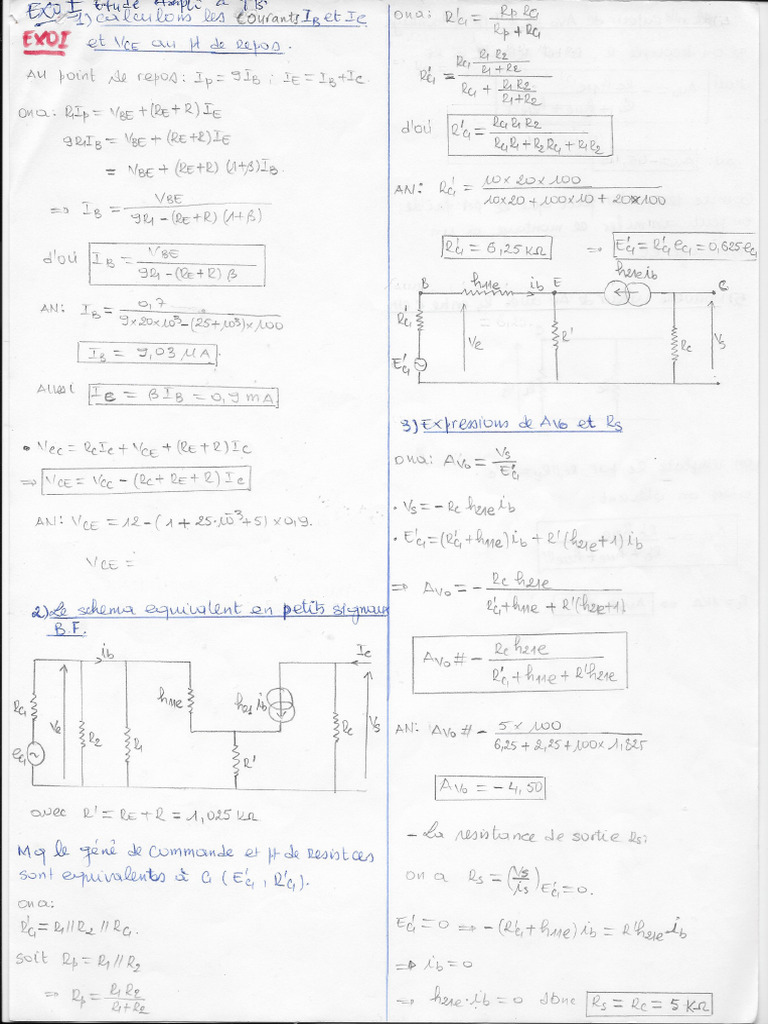 EXOI Etude Ampli à TB
1) calculons les Courants IB et Ic
EXOI
et VCE au pt de repos.
Au point de repos: Ip = 9IB ; IE = IB+Ic.
ona: R1Ip = VBE + (RE+R)IE
9R1IB = VBE + (RE+R)IE
= VBE + (RE+R) (1+β)IB.
⇒ IB = VBE / (9R1 - (RE+R)(1+β))
d'où IB = VBE / (9R1 - (RE+R) β)
AN: IB = 0,7 / (9×20×10³ - (25+10³)×100)
IB = 9,03 μA
Aussi Ic = βIB = 0,9 mA
• Vcc = RcIc + VCE + (RE+R)Ic
⇒ VCE = Vcc - (Rc+RE+R) Ic
AN: VCE = 12 - (1 + 25.10⁻³ + 5) × 0,9.
VCE =
2) Le schema equivalent en petits signaux
B.F.
ib
Ic
RG
Ve
R2
R1
h11e
h21 ib
Rc
Vs
eG
R'
avec R' = RE + R = 1,025 KΩ
Mq le géné de Commande et pt de Resistces
sont equivalents à G (E'G, R'G).
ona:
R'G = R1 // R2 // RG.
soit Rp = R1 // R2
⇒ Rp = R1 R2 / (R1+R2)
ona: R'G = Rp RG / (Rp + RG)
R'G = (RG R1 R2 / (R1+R2)) / (RG + R1 R2 / (R1+R2))
d'où R'G = RG R1 R2 / (RG R1 + R2 RG + R1 R2)
AN: R'G = 10 × 20 × 100 / (10×20 + 100×10 + 20×100)
R'G = 6,25 KΩ ⇒ E'G = R'G eG = 0,625 eG
B h11e ib E h21e ib C
R'G
Ve
R'
Rc
Vs
E'G
3) Expressions de Av0 et Rs
ona: Av0 = Vs / E'G
• Vs = - Rc h21e ib
• E'G = (R'G + h11e) ib + R'(h21e+1) ib
⇒ Av0 = - Rc h21e / (R'G + h11e + R'(h21e+1))
Av0 # - Rc h21e / (R'G + h11e + R'h21e)
AN: Av0 # - 5 × 100 / (6,25 + 2,25 + 100 × 1,025)
Av0 = - 4,50
- La resistance de sortie Rs:
on a Rs = (Vs / is) E'G = 0.
E'G = 0 ⇒ - (R'G + h11e) ib = R'h21e ib
⇒ ib = 0
⇒ h21e . ib = 0 donc Rs = Rc = 5 KΩ